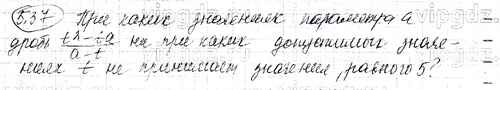 5.37 При каких значениях параметра a
дробь ни при каких допустимых значе-
ниях t не принимает значения, равного 5?